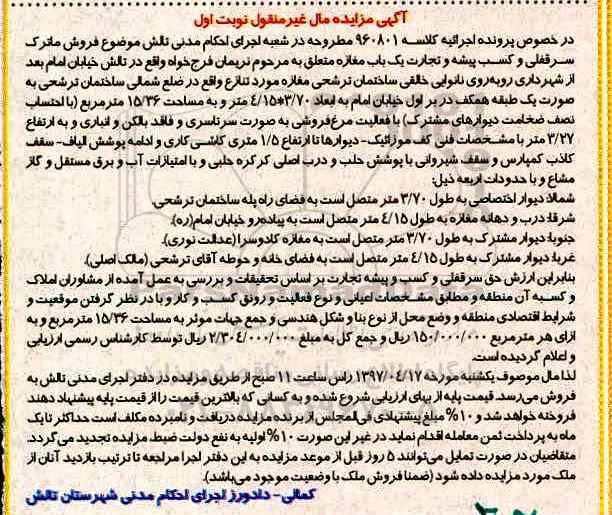 آگهی مزایده مال غیرمنقول نوبت اول
در خصوص پرونده اجرائیه کلاسه ۹۶۰۸۰۱ مطروحه در شعبه اجرای احکام مدنی تالش موضوع فروش ماترک
سرقفلی و کسب پیشه و تجارت یک باب مغازه متعلق به مرحوم نریمان فرج‌خواه واقع در تالش خیابان امام بعد
از شهرداری روبه‌روی نانوایی خالقی ساختمان ترشحی مغازه مورد تنازع واقع در ضلع شمالی ساختمان ترشحی به
صورت یک طبقه همکف در بر اول خیابان امام به ابعاد ۳/۷۰*۴/۱۵ متر و به مساحت ۱۵/۳۶ مترمربع (با احتساب
نصف ضخامت دیوارهای مشترک) با فعالیت مرغ‌فروشی به صورت سرتاسری و فاقد بالکن و انباری و به ارتفاع
۳/۲۷ متر با مشخصات فنی کف موزائیک- دیوارها تا ارتفاع ۱/۵ متری کاشی‌کاری و ادامه پوشش الیاف- سقف
کاذب کمپارس و سقف شیروانی با پوشش حلب و درب اصلی کرکره حلبی و با امتیازات آب و برق مستقل و گاز
مشاع و با حدودات اربعه ذیل:
شمالا: دیوار اختصاصی به طول ۳/۷۰ متر متصل است به فضای راه پله ساختمان ترشحی.
شرقا: درب و دهانه مغازه به طول ۴/۱۵ متر متصل است به پیاده‌رو خیابان امام(ره).
جنوبا: دیوار مشترک به طول ۳/۷۰ متر متصل است به مغازه کادوسرا (عدالت نوری).
غربا: دیوار مشترک به طول ۴/۱۵ متر متصل است به فضای خانه و حوطه آقای ترشحی (مالک اصلی).
بنابراین ارزش حق سرقفلی و کسب و پیشه تجارت بر اساس تحقیقات و بررسی به عمل آمده از مشاوران املاک
و کسبه آن منطقه و مطابق مشخصات اعیانی و نوع فعالیت و رونق کسب و کار و با در نظر گرفتن موقعیت و
شرایط اقتصادی منطقه و وضع محل از نوع بنا و شکل هندسی و جمع جهات موثر به مساحت ۱۵/۳۶ مترمربع و به
ازای هر مترمربع ۱۵۰/۰۰۰/۰۰۰ ریال و جمع کل به مبلغ ۲/۳۰۴/۰۰۰/۰۰۰ ریال توسط کارشناس رسمی ارزیابی
و اعلام گردیده است.
لذا مال موصوف یکشنبه مورخه ۱۳۹۷/۰۴/۱۷ راس ساعت ۱۱ صبح از طریق مزایده در دفتر اجرای مدنی تالش به
فروش می‌رسد. قیمت پایه از بهای ارزیابی شروع شده و به کسانی که بالاترین قیمت را از قیمت پایه پیشنهاد دهند
فروخته خواهد شد و ۱۰% مبلغ پیشنهادی فی‌المجلس از برنده مزایده دریافت و نامبرده مکلف است حداکثر تا یک
ماه به پرداخت ثمن معامله اقدام نماید در غیر این صورت ۱۰% اولیه به نفع دولت ضبط مزایده تجدید می‌گردد.
متقاضیان در صورت تمایل می‌توانند ۵ روز قبل از موعد مزایده به این دفتر اجرا مراجعه تا ترتیب بازدید آنان از
ملک مورد مزایده داده شود (ضمنا فروش ملک با وضعیت موجود می‌باشد).
کمالی- دادورز اجرای احکام مدنی شهرستان تالش